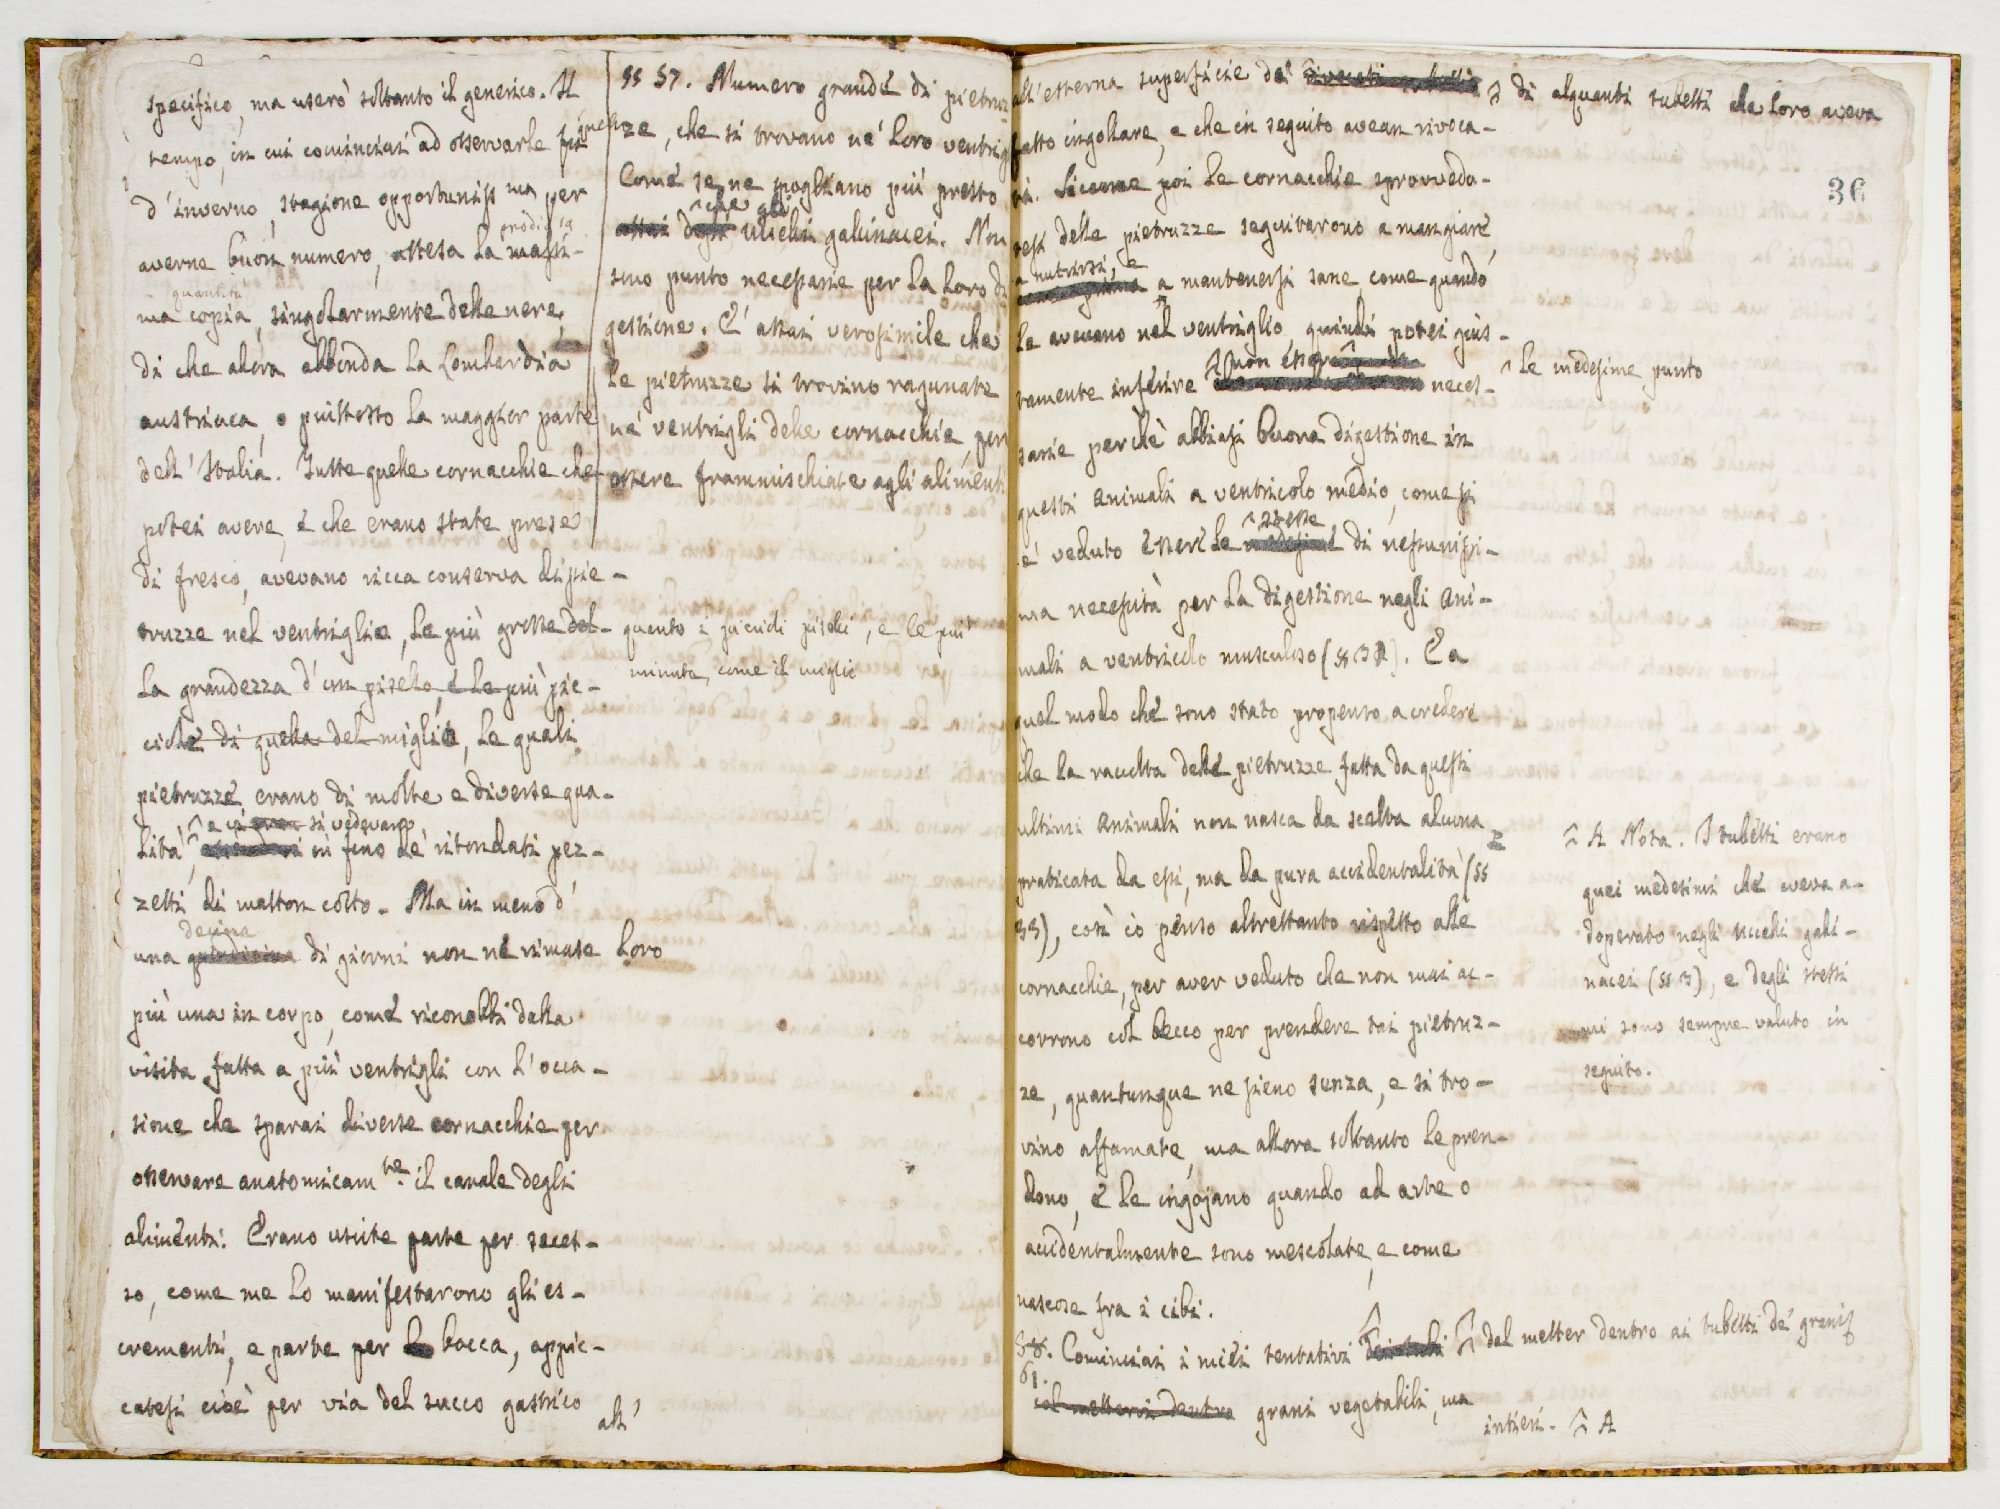 specifico, ma userò soltanto il generico. Il
tempo, in cui cominciai ad osservarle fu
d'inverno, stagione opportuniss.ma per
prodigiosa
averne buon numero, attesa la massi-
quantità
ma copia, singolarmente delle nere,
di che allora abbonda la Lombardia
austriaca, o piuttosto la maggior parte
dell'Italia. Tutte quelle cornacchie che
potei avere, e che erano state prese
di fresco, avevano ricca conserva di pie-
truzze nel ventriglio, le più grosse del-
la grandezza d'un pisello, e le più pic-
ciole di quella del miglio, le quali
pietruzze erano di molte e diverse qua-
e vi si vedevano
lità, in fino de' ritondati pez-
zetti di matton cotto. Ma in meno d'
decina
una quindicina di giorni non ne rimase loro
più una in corpo, come riconobbi dalla
visita fatta a più ventrigli con l'occa-
sione che sparai diverse cornacchie per
osservare anatomicam.te il canale degli
alimenti. Erano uscite parte per seces-
so, come me lo manifestarono gli es-
crementi, e parte per la bocca, appic-
catesi cioè per via del succo gastrico
all'
§§ 57. Numero grande di pietruz-
ze, che si trovano ne' loro ventrigli
Come se ne pogliano più presto
che gli
assai degli uccelli gallinacei. Non
sono punto necessarie per la loro di
gestione. E' assai verosimile che
le pietruzze si trovino ragunate
ne' ventrigli delle cornacchie, per
essere frammischiate agli alimenti
quanto i piccioli piselli, e le più
minute, come il miglio
all'esterna superficie di alquanti tubetti che loro aveva
36
fatto ingollare, e che in seguito avean rivoca-
ti. Siccome poi le cornacchie sprovvedu-
tesi delle pietruzze seguitarono a mangiare,
a nutrirsi, e
a mantenersi sane, come quando
le avevano nel ventriglio, quindi potei gius-
non essere
tamente inferire neces-
le medesime punto
sarie perchè abbiasi buona digestione in
questi animali a ventricolo medio, come si
stesse
è veduto esser le medesime di nessunissi-
ma necessità per la digestione negli ani-
mali a ventricolo musculoso (§§ 32). E a
quel modo che sono stato propenso a credere
che la raccolta delle pietruzze fatta da questi
ultimi animali non nasca da scelta alcuna
praticata da essi, ma da pura accidentalità (§§
33), così io penso altrettanto rispetto alle
cornacchie, per aver veduto che non mai ac-
corrono col becco per prendere tai pietruz-
ze, quantunque ne sieno senza, e si tro-
vino affamate, ma allora soltanto le pren-
dono, e le ingojano quando ad arte o
accidentalmente sono mescolate, e come
nascose fra i cibi.
58. Cominciai i miei tentativi dal metter dentro ai tubetti de' grani
61.
col mettervi dentro grani vegetabili, ma
intieri. A
A Nota. I tubetti erano
quei medesimi che aveva a-
doperato negli uccelli galli-
nacei (§§ 3), e degli stessi
mi sono sempre valuto in
seguito.